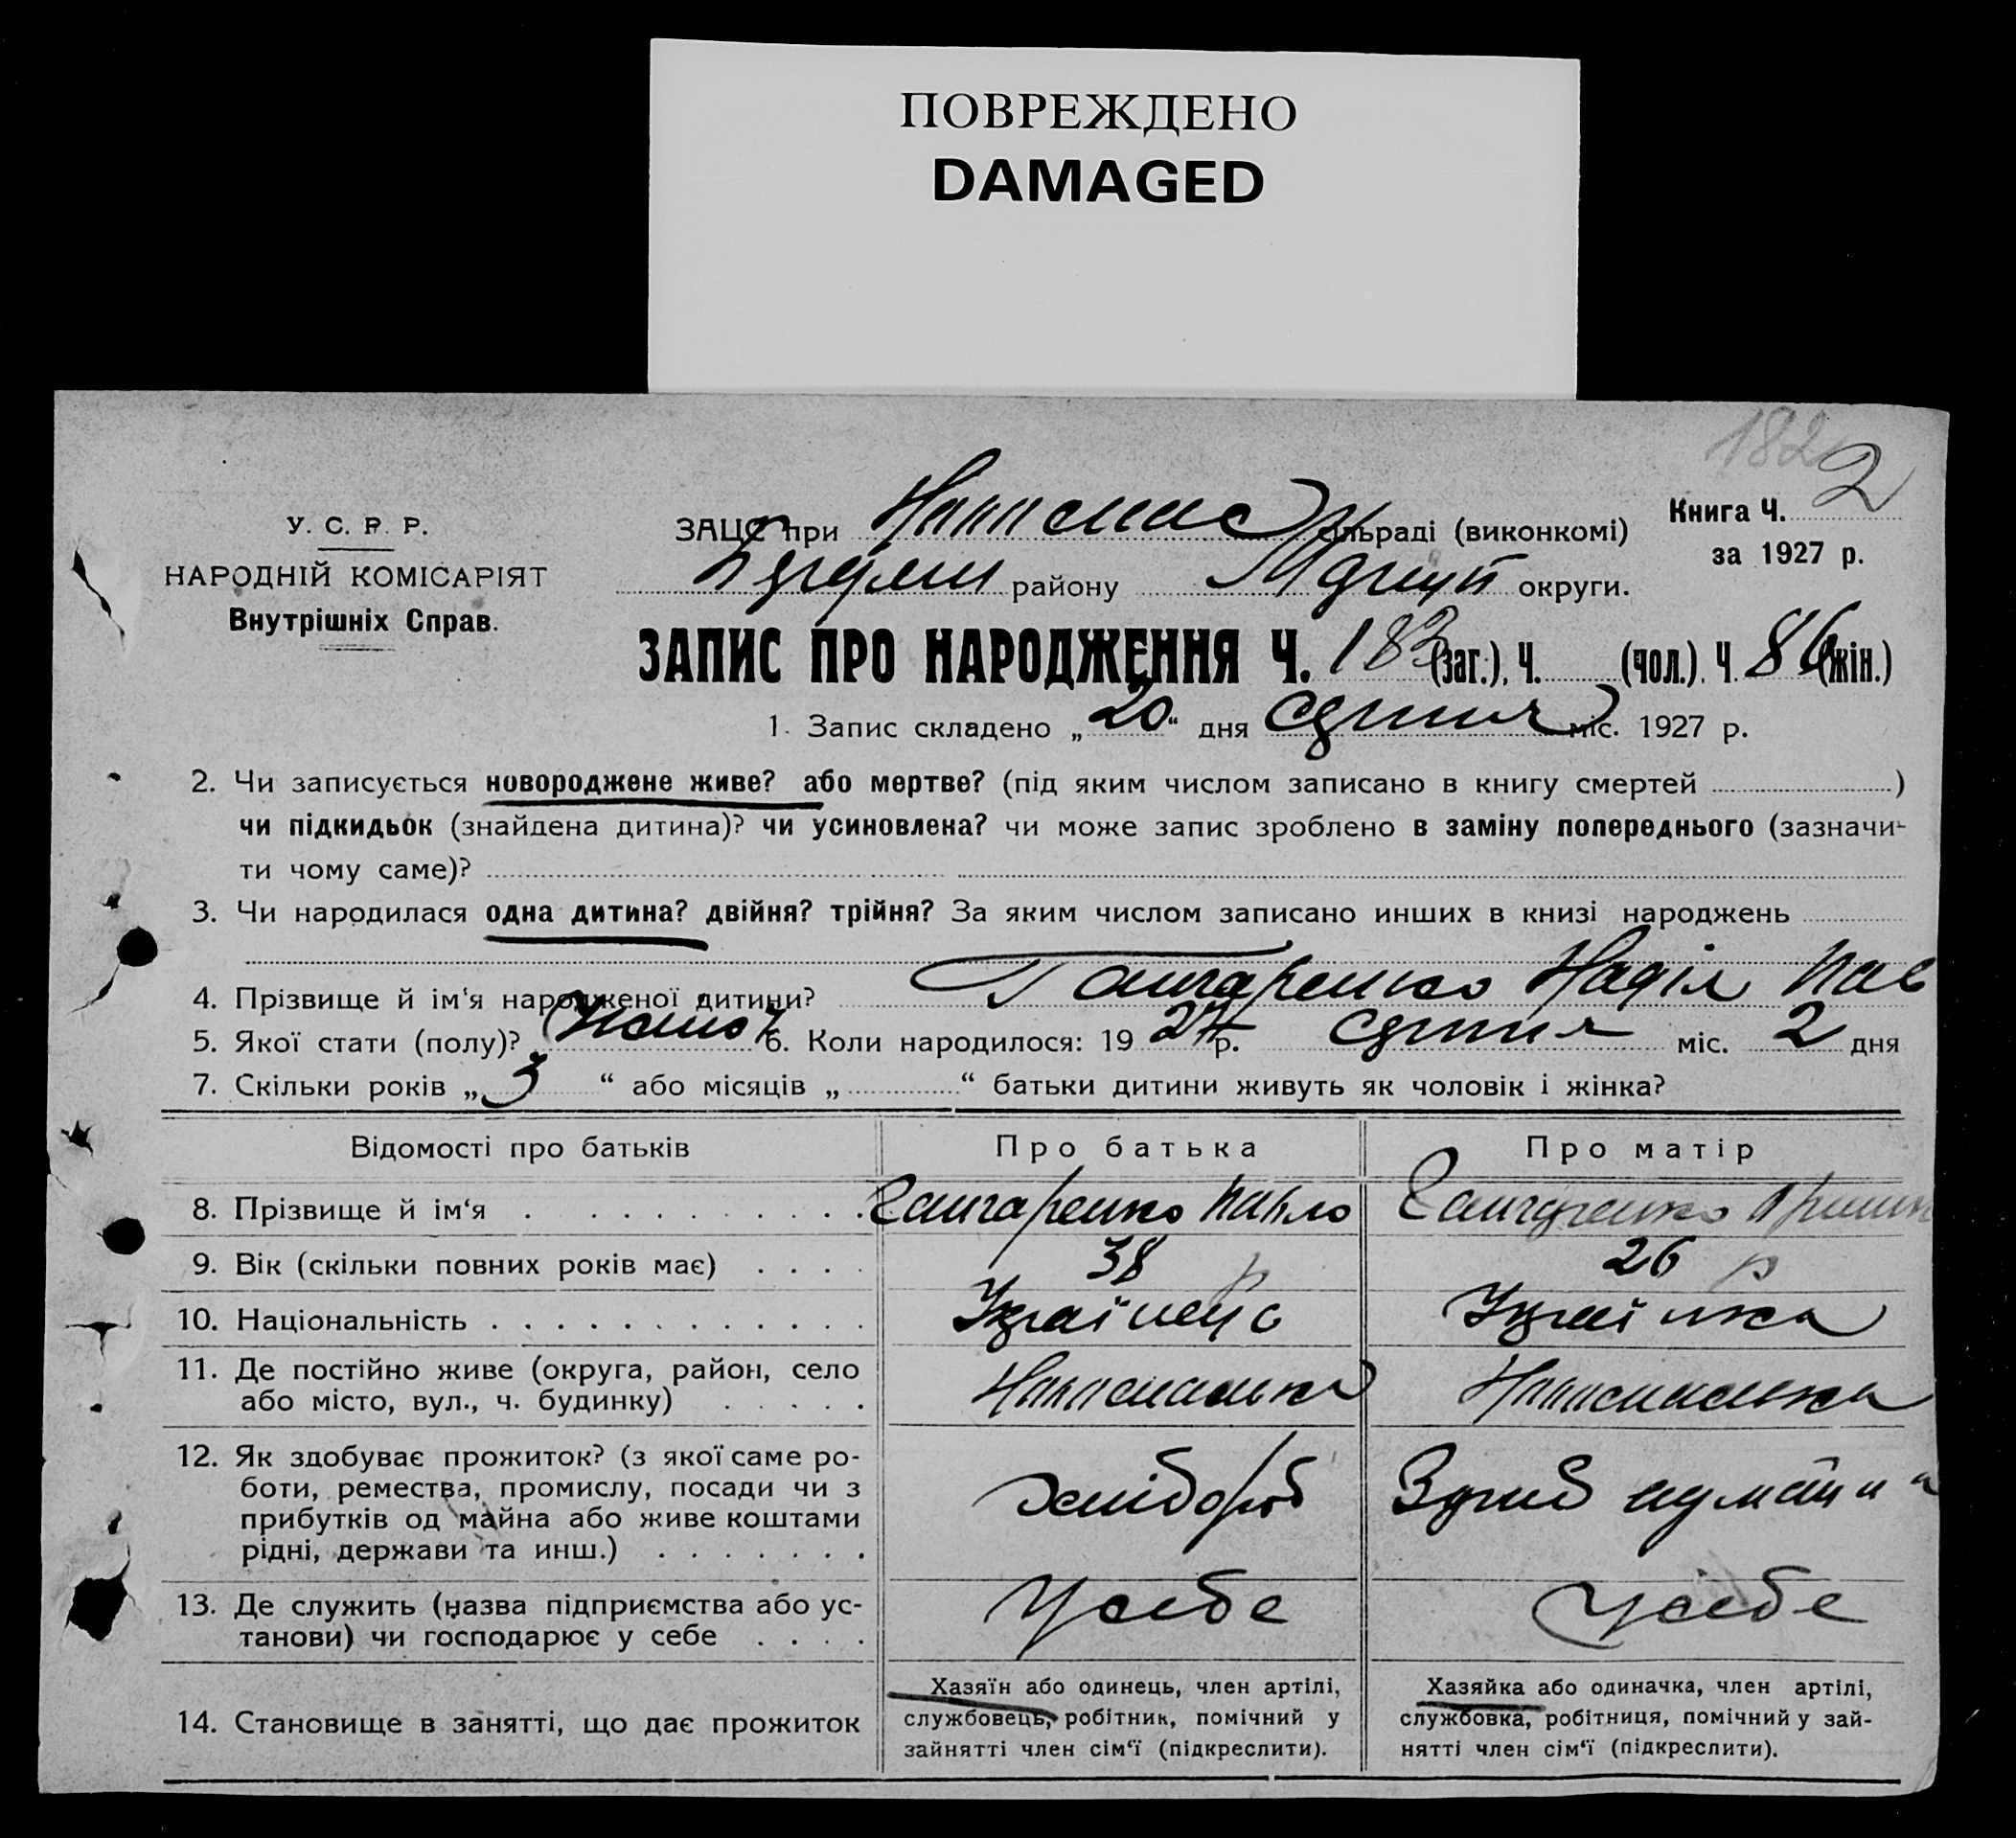 ПОВРЕЖДЕНО
DAMAGED
182
У. С. Р. Р.
НАРОДНІЙ КОМІСАРІЯТ
Внутрішніх Справ.
ЗАЦС при сільраді (виконкомі)
району округи.
Книга Ч. 2
за 1927 р.
ЗАПИС ПРО НАРОДЖЕННЯ Ч. 183 (заг.), Ч. (чол.). Ч 86 (жін.)
1. Запис складено „20“ дня серпня міс. 1927 р.
2. Чи записується новороджене живе? або мертве? (під яким числом записано в книгу смертей )
чи підкидьок (знайдена дитина)? чи усиновлена? чи може запис зроблено в заміну попереднього (зазначи-
ти чому саме)?
3. Чи народилася одна дитина? двійня? трійня? За яким числом записано инших в книзі народжень
4. Прізвище й ім'я народженої дитини? Гончаренко Надія Пав
5. Якої стати (полу)? 6. Коли народилося: 19 27 р. серпня міс. 2 дня
7. Скільки років „ 3 “ або місяців „ “ батьки дитини живуть як чоловік і жінка?
Відомості про батьків Про батька Про матір
8. Прізвище й ім'я Гончаренко Павло Гончаренко
9. Вік (скільки повних років має) 38 р 26 р
10. Національність Українець Українка
11. Де постійно живе (округа, район, село
або місто, вул., ч. будинку)
12. Як здобуває прожиток? (з якої саме ро-
боти, ремества, промислу, посади чи з
прибутків од майна або живе коштами
рідні, держави та инш.)
хлібороб
13. Де служить (назва підприємства або ус-
танови) чи господарює у себе
У себе У себе
14. Становище в занятті, що дає прожиток
Хазяїн або одинець, член артілі,
службовець, робітник, помічний у
зайнятті член сім'ї (підкреслити).
Хазяйка або одиначка, член артілі,
службовка, робітниця, помічний у зай-
нятті член сім'ї (підкреслити).